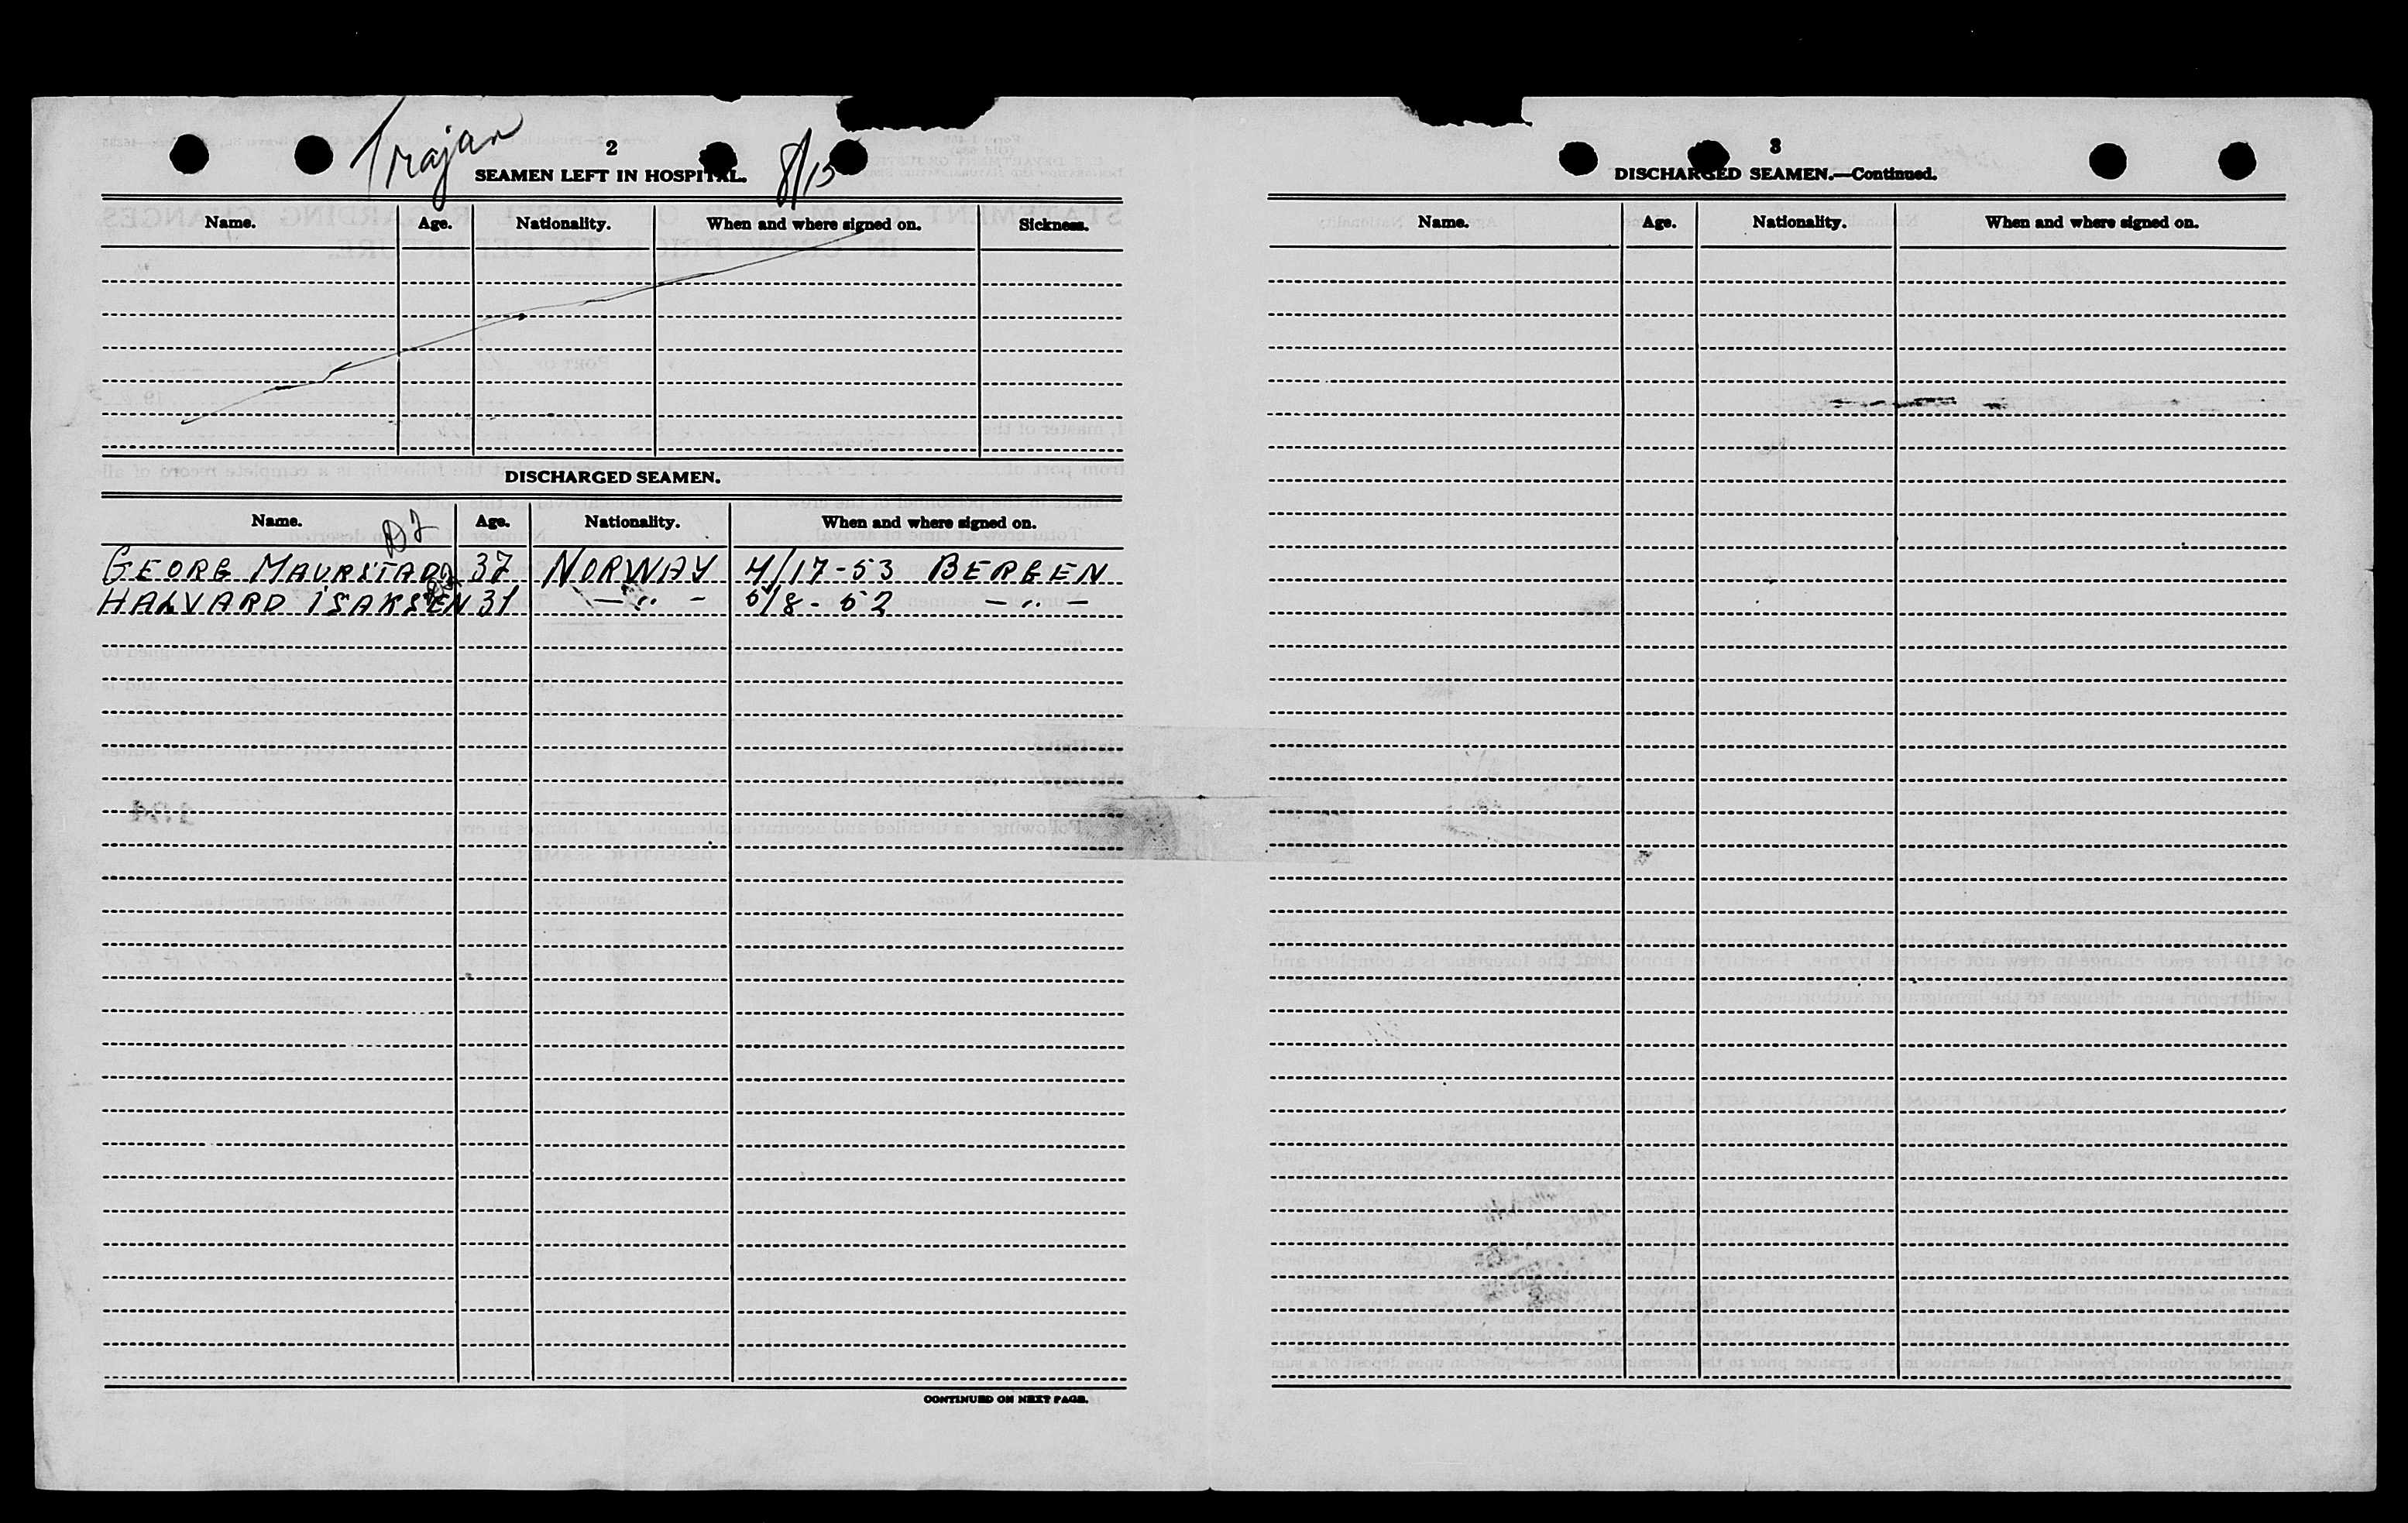 Trajan
2
8/15
SEAMEN LEFT IN HOSPITAL.
Name. Age. Nationality. When and where signed on. Sickness.
DISCHARGED SEAMEN.
Name. Age. Nationality. When and where signed on.
GEORG MAURSTAD 37 NORWAY 4/17-53 BERGEN
HALVARD ISAKSEN 31 — " — 5/8-52 — " —
CONTINUED ON NEXT PAGE.
3
DISCHARGED SEAMEN.—Continued.
Name. Age. Nationality. When and where signed on.